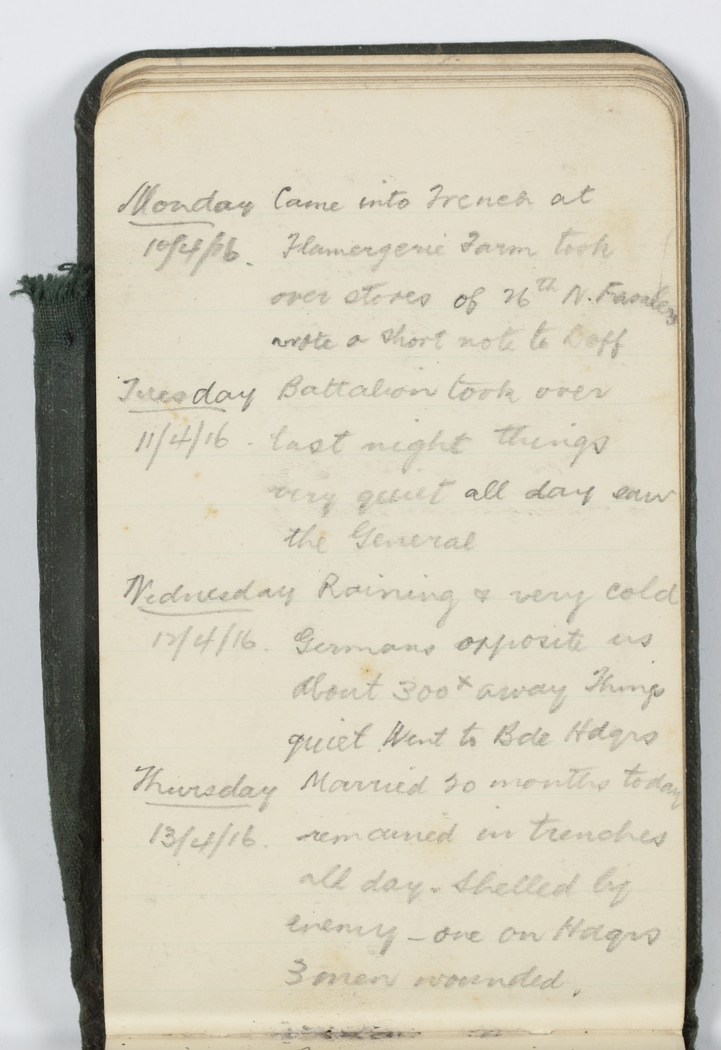 Monday Came into Trench at
10/4/16. Flamergerie Farm took
over stores of 26th N. Fusaliers
wrote a short note to Daff
Tuesday Battalion took over
11/4/16 - last night things
very quiet all day saw
the General
Wednesday Raining & very cold
12/4/16. Germans opposite us
about 300x away Things
quiet Went to Bde Hdqrs
Thursday Married 20 months today
13/4/16. remained in trenches
all day. Shelled by
enemy - one on Hdqrs
3 men wounded.